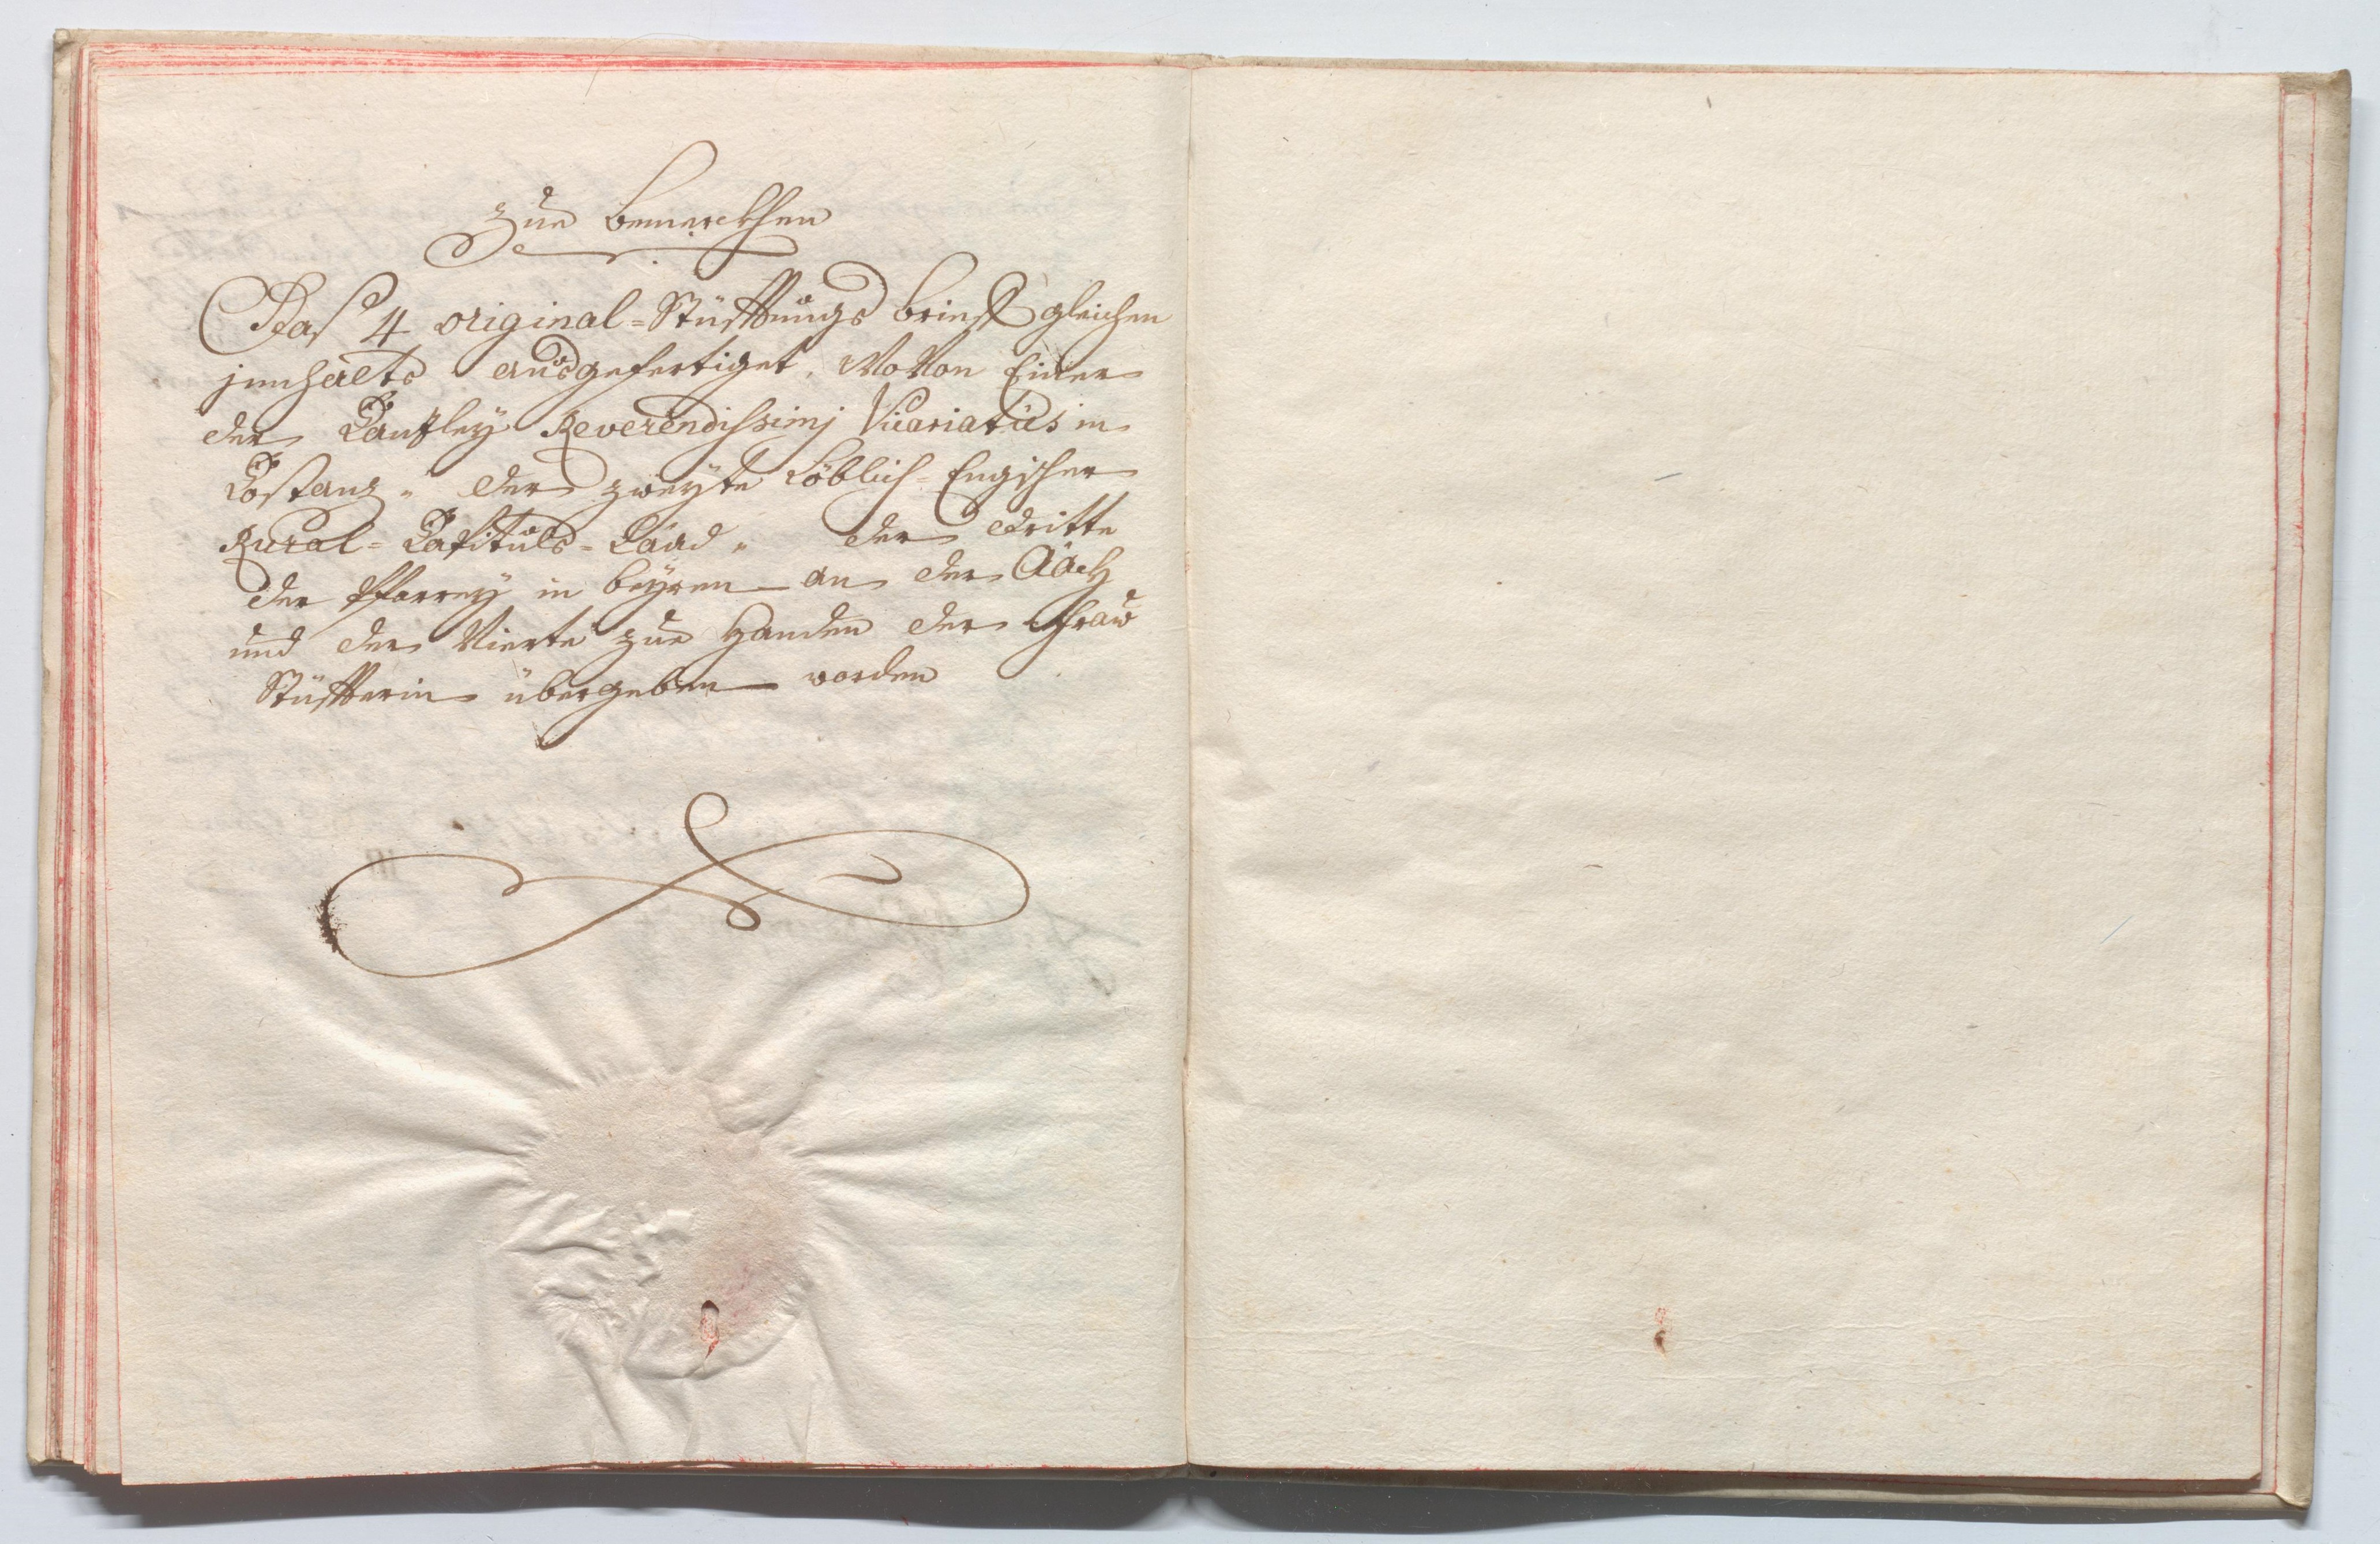 Zue bemerckhen
Daß 4 original-Stüfftungs brieff gleichen
jnnhalts ausgefertiget, Wovon Einer
der Cantzley Reverendissimj Vicariatus in
Costanz, der zweyte Löblich-Engischer
Rural-Capituls-Laad, der dritte
der Pfarrey in beyren an der Aach
und der Vierte zue Handen der Fraw
Stüffterin übergeben worden